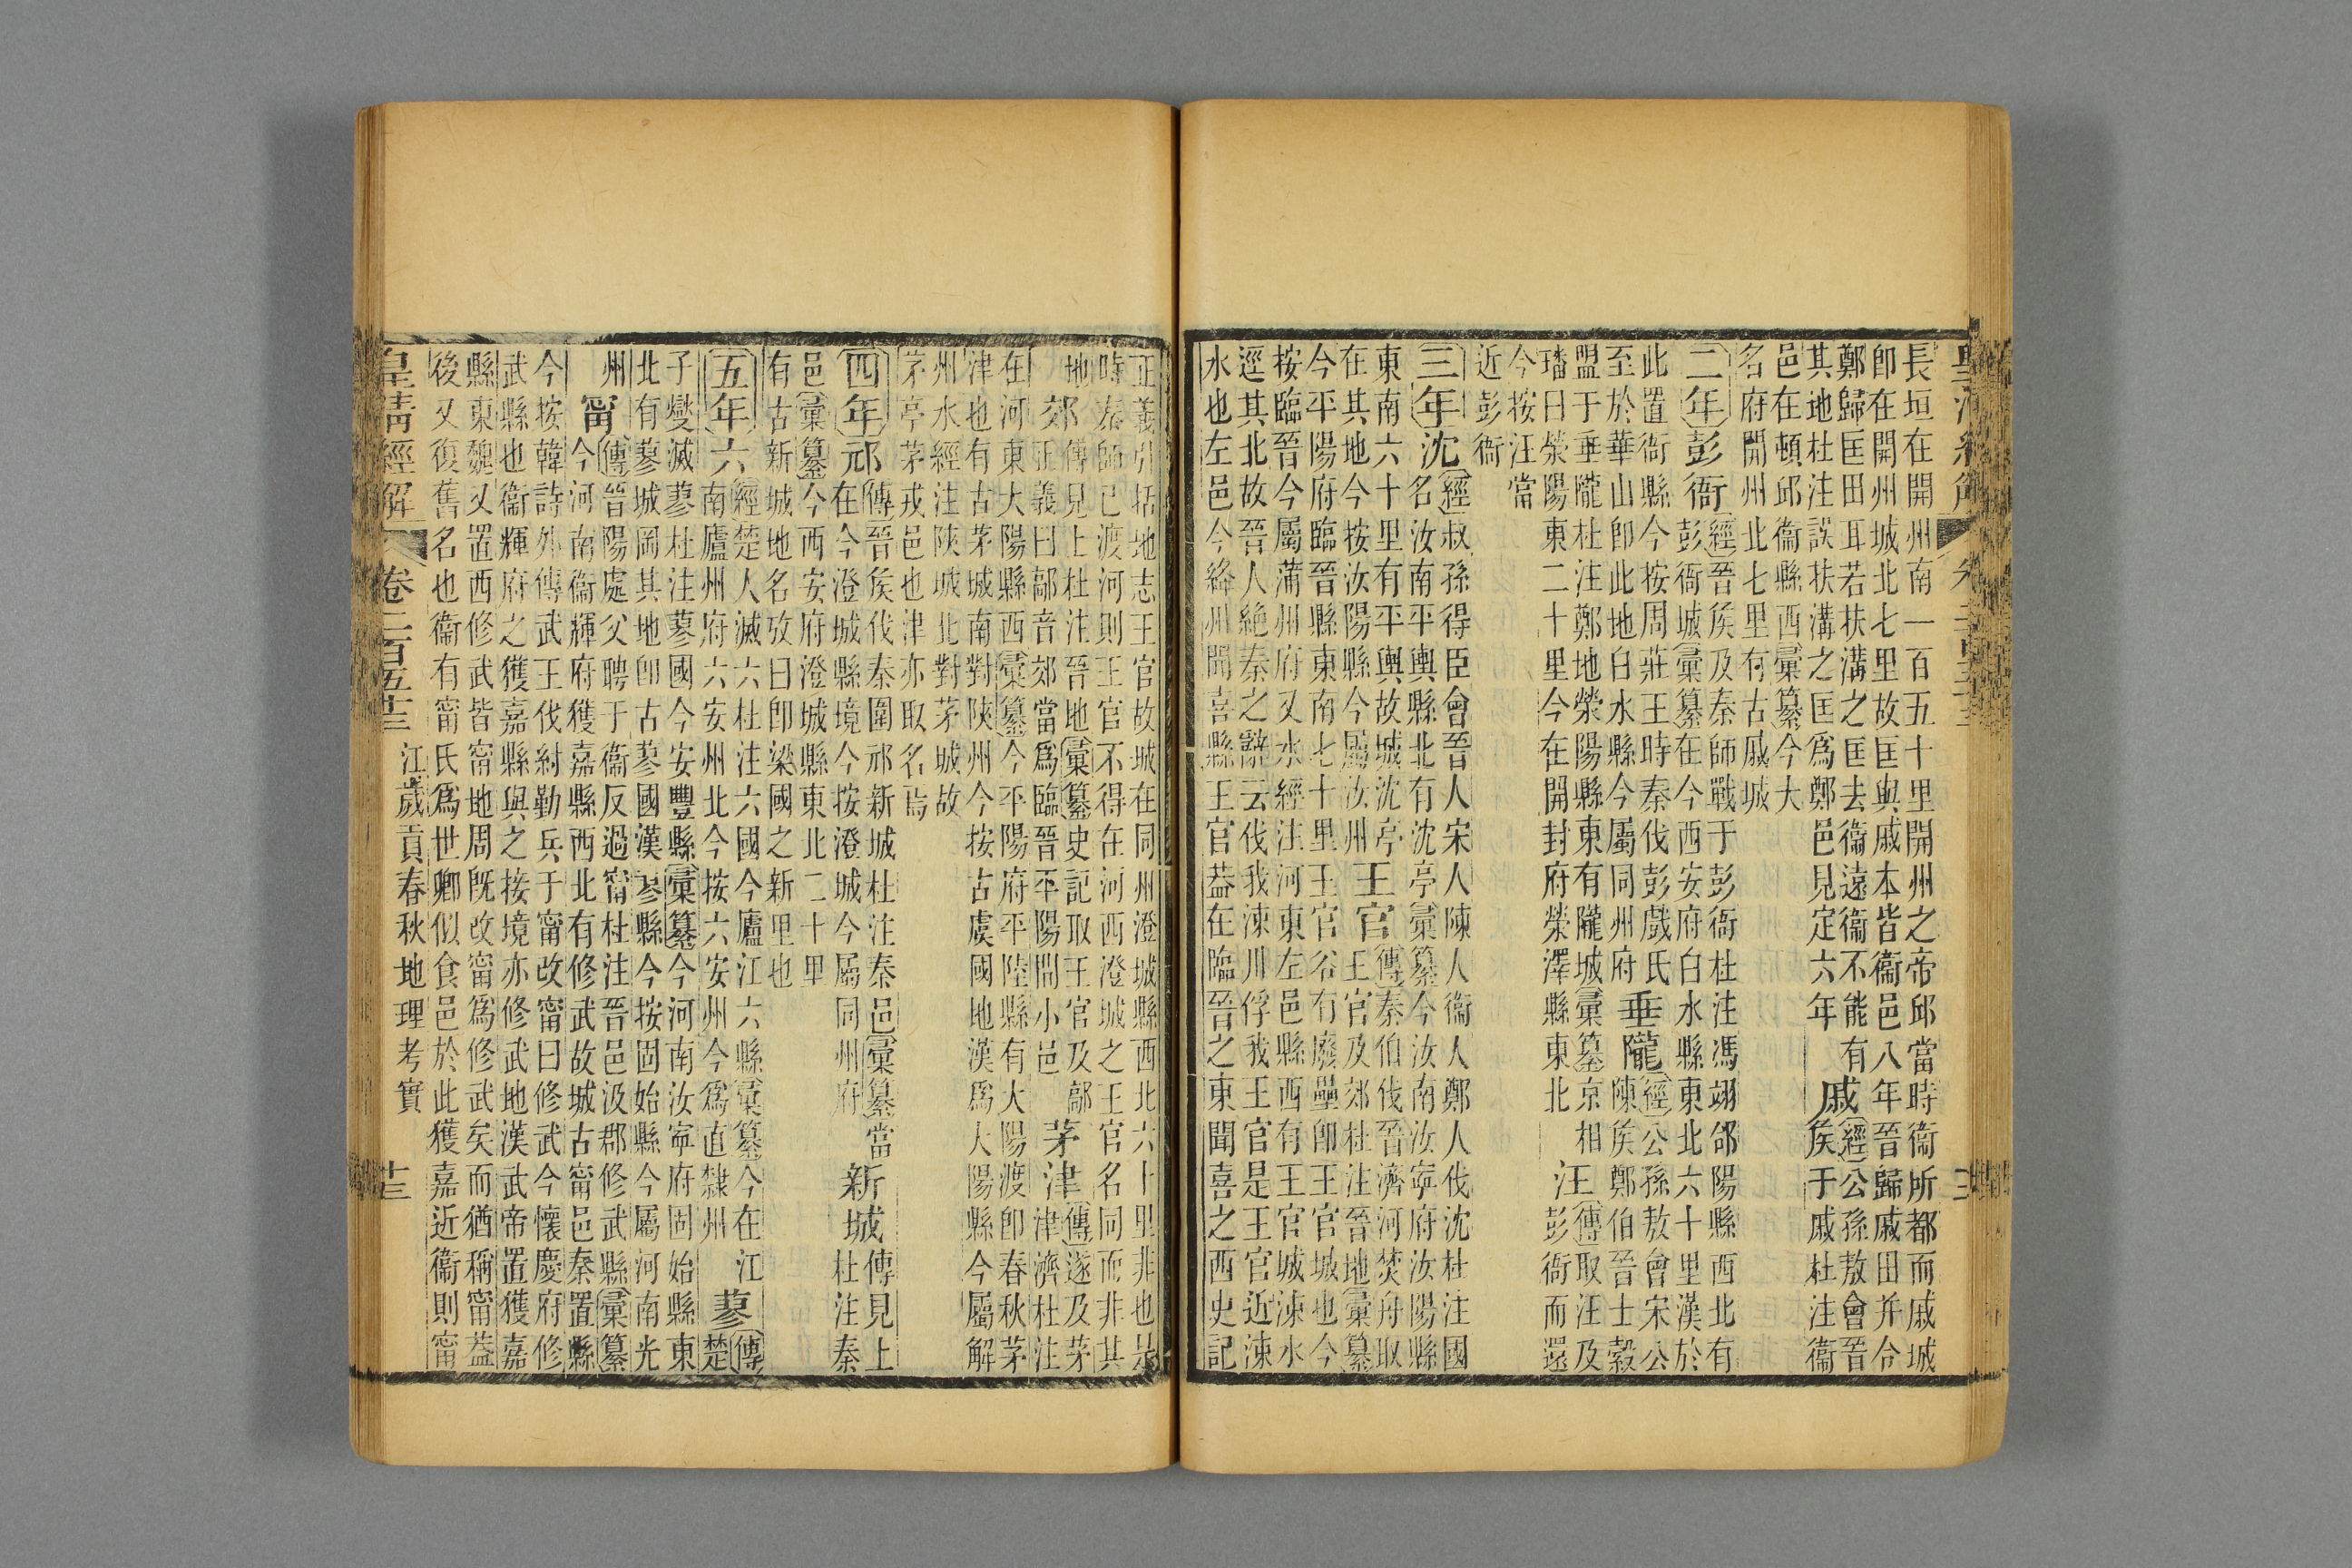 長垣在開州南一百五十里開州之帝邱當時衛所都而戚城
即在開州城北七里故匡與戚本皆衛邑八年晉歸戚田并令
鄭歸匡田耳若扶溝之匡去衛遠衛不能有
其地杜注誤扶溝之匡爲鄭邑見定六年
戚
經公孫敖會晉
矦于戚杜注衛
邑在頓邱衛縣西彚纂今大
名府開州北七里有古戚城
二年彭衙
經晉矦及秦師戰于彭衙杜注馮翊郃陽縣西北有
彭衙城彚纂在今西安府白水縣東北六十里漢於
此置衙縣今按周莊王時秦伐彭戲氏
至於華山即此地白水縣今屬同州府
垂隴
經公孫敖會宋公
陳矦鄭伯晉士縠
盟于垂隴杜注鄭地榮陽縣東有隴城彚纂京相
璠曰榮陽東二十里今在開封府榮澤縣東北
汪
傳取汪及
彭衙而還
今按汪當
近彭衙
三年沈
經叔孫得臣會晉人宋人陳人衛人鄭人伐沈杜注國
名汝南平輿縣北有沈亭彚纂今汝南汝寧府汝陽縣
東南六十里有平輿故城沈亭
在其地今按汝陽縣今屬汝州
王官
傳秦伯伐晉濟河焚舟取
王官及郊杜注晉地彚纂
今平陽府臨晉縣東南七十里王官谷有廢壘即王官城也今
按臨晉今屬蒲州府又水經注河東左邑縣西有王官城涑水
逕其北故晉人絶秦之辭云伐我涑川俘我王官是王官近涑
水也左邑今絳州聞喜縣王官葢在臨晉之東聞喜之西史記
正義引括地志王官故城在同州澄城縣西北六十里非也是
時秦師已渡河則王官不得在河西澄城之王官名同而非其
地
郊
傳見上杜注晉地彚纂史記取王官及鄗
正義曰鄗音郊當爲臨晉平陽間小邑
茅津
傳遂及茅
津濟杜注
在河東大陽縣西彚纂今平陽府平陸縣有大陽渡即春秋茅
津也有古茅城南對陝州今按古虞國地漢爲大陽縣今屬解
州水經注陝城北對茅城故
茅亭茅戎邑也津亦取名焉
四年邧
傳晉矦伐秦圍邧新城杜注秦邑彚纂當
在今澄城縣境今按澄城今屬同州府
新城
傳見上
杜注秦
邑彚纂今西安府澄城縣東北二十里
有古新城地名攷曰即梁國之新里也
五年六
經楚人滅六杜注六國今廬江六縣彚纂今在江
南廬州府六安州北今按六安州今爲直隸州
蓼
傳楚
子燮滅蓼杜注蓼國今安豐縣彚纂今河南汝寧府固始縣東
北有蓼城岡其地即古蓼國漢蓼縣今按固始縣今屬河南光
州
甯
傳晉陽處父聘于衛反過甯杜注晉邑汲郡修武縣彚纂
今河南衛輝府獲嘉縣西北有修武故城古甯邑秦置縣
今按韓詩外傳武王伐紂勤兵于甯改甯曰修武今懷慶府修
武縣也衛輝府之獲嘉縣與之接境亦修武地漢武帝置獲嘉
縣東魏又置西修武皆甯地周既改甯爲修武矣而猶稱甯葢
後又復舊名也衛有甯氏爲世卿似食邑於此獲嘉近衛則甯
皇清經解 卷二百五十三 江歲貢春秋地理考實 十三